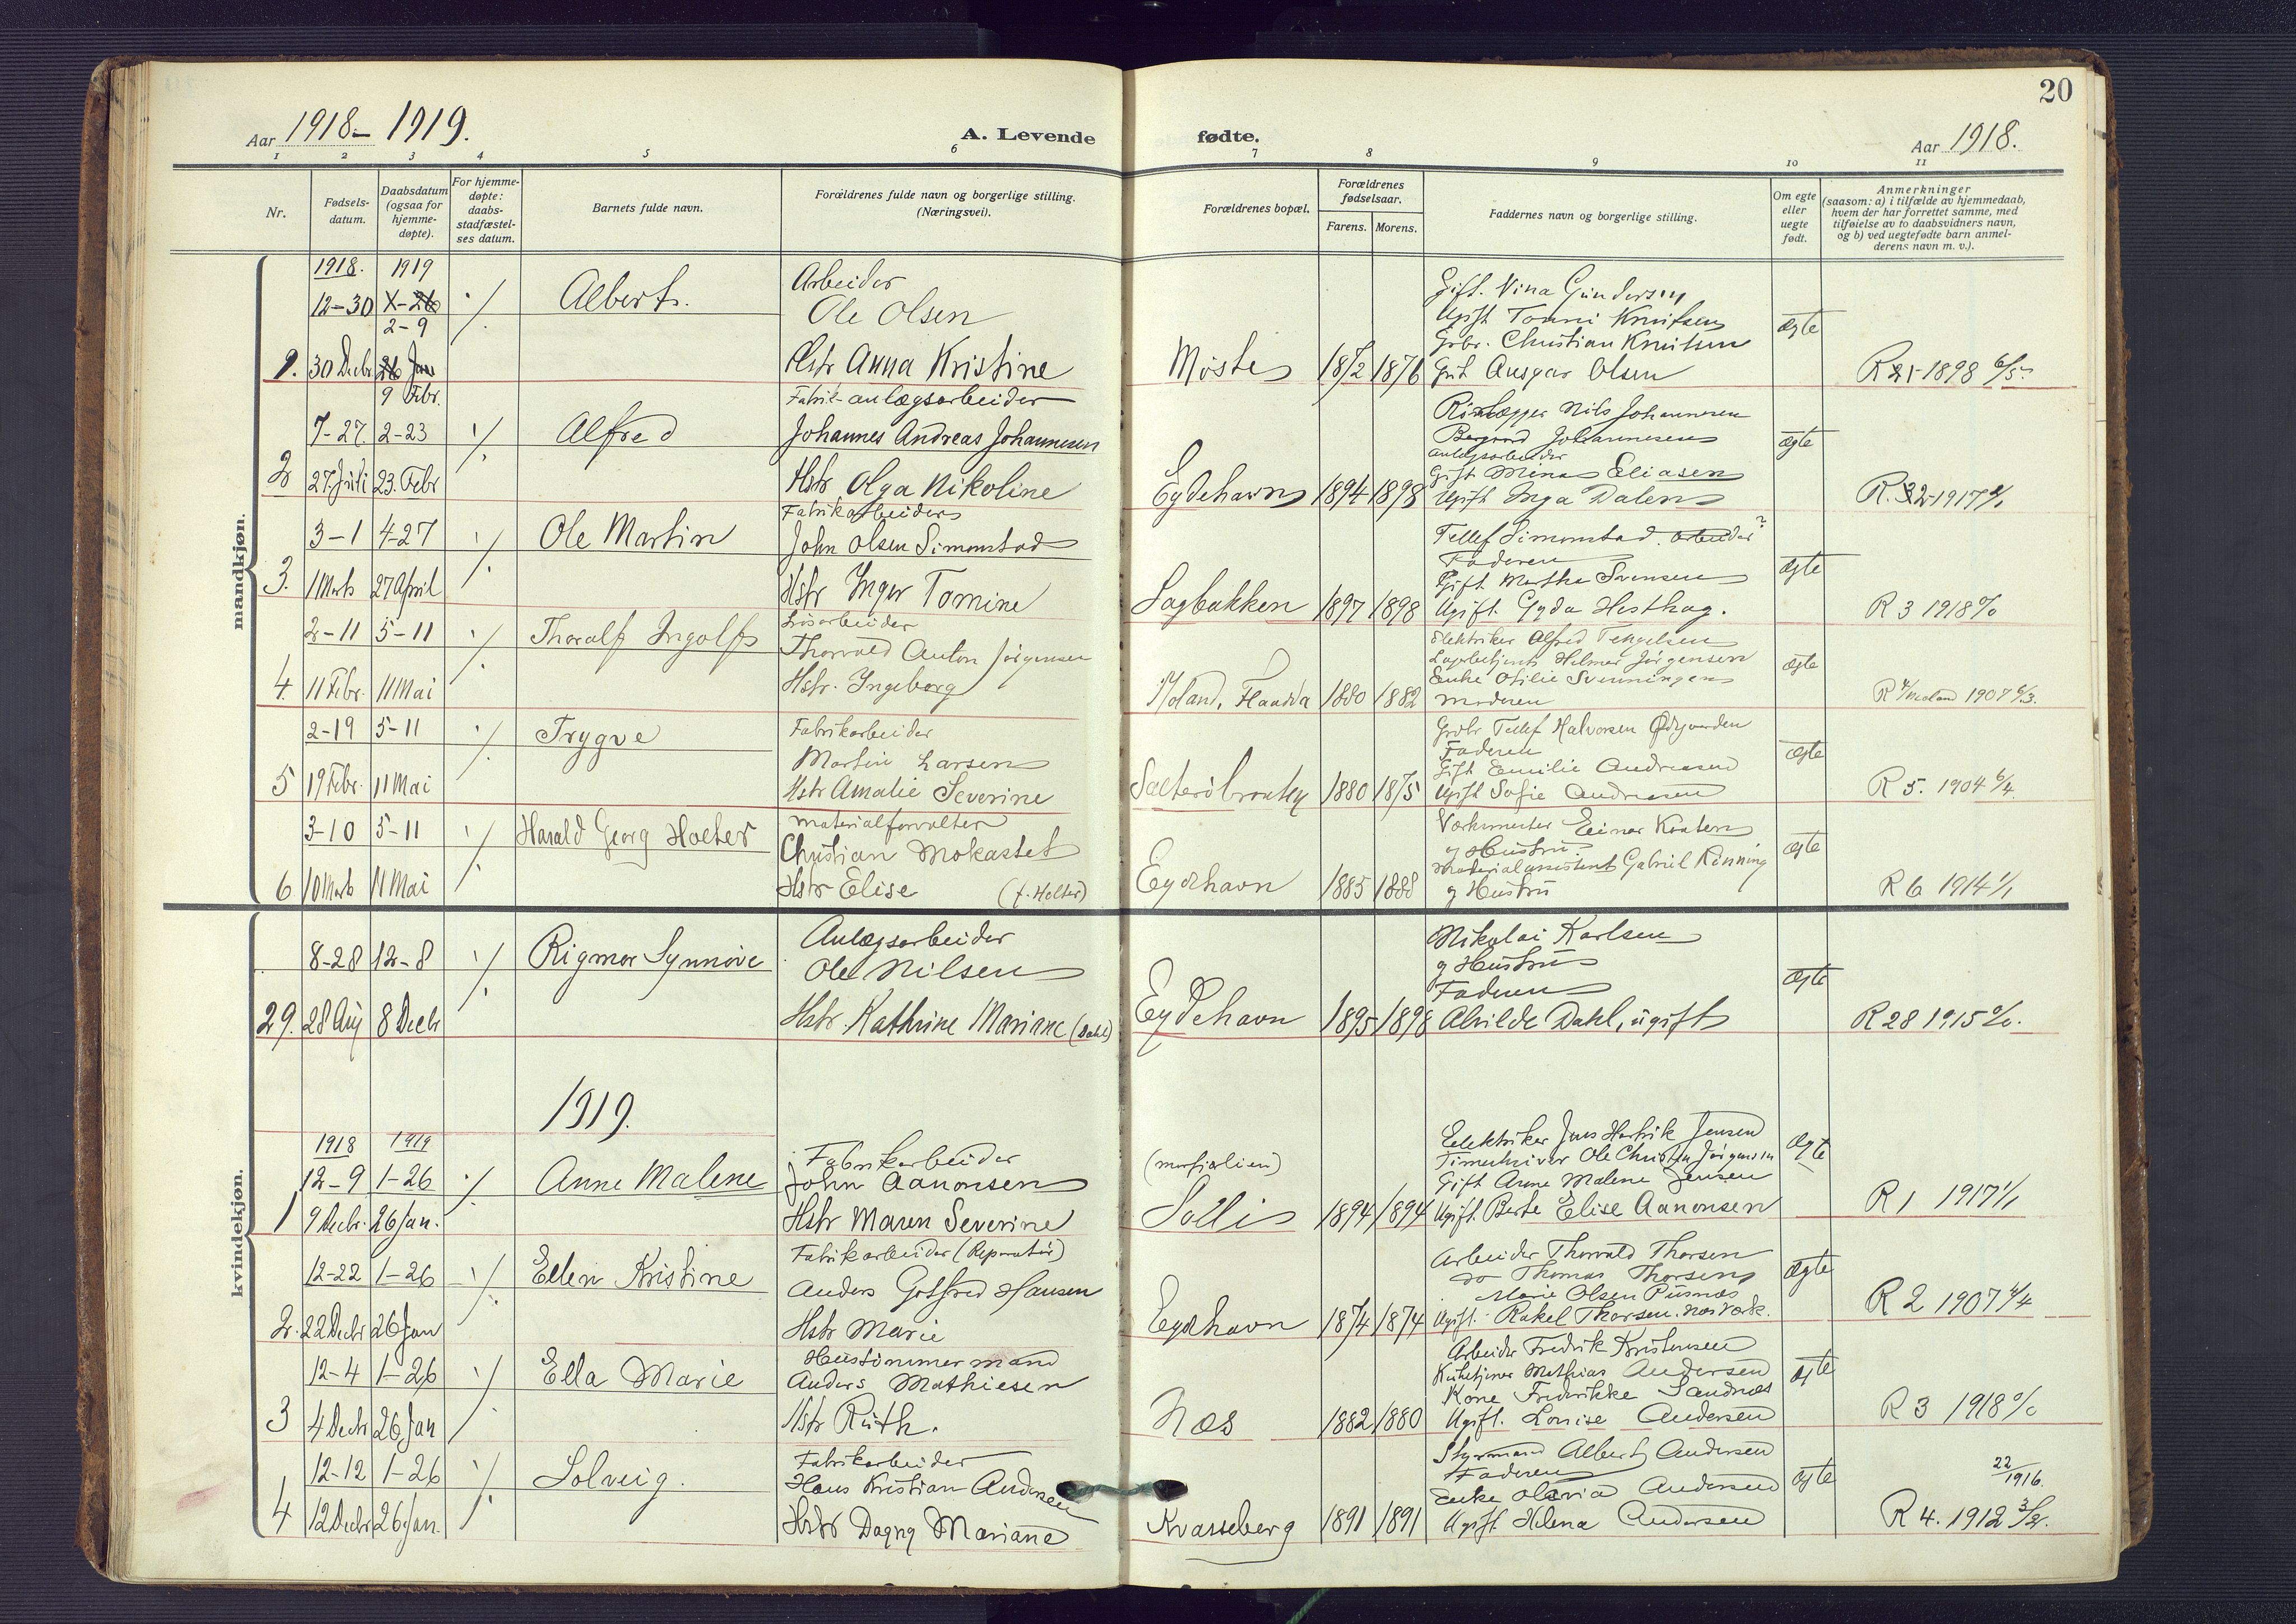 20
Aar 1918 – 1919.
A. Levende fødte.
Aar 1918.
1 2 3 4 5 6 7 8 9 10 11
Nr.
Fødsels-
datum.
Daabsdatum
(ogsaa for
hjemme-
døpte).
For hjemme-
døpte:
daabs-
stadfæstel-
ses datum.
Barnets fulde navn.
Forældrenes fulde navn og borgerlige stilling.
(Næringsvei).
Forældrenes bopæl.
Forældrenes
fødselsaar.
Farens. Morens.
Faddernes navn og borgerlige stilling.
Om egte
eller
uegte
født.
Anmerkninger
(saasom: a) i tilfælde av hjemmedaab,
hvem der har forrettet samme, med
tilføielse av to daabsvidners navn,
og b) ved uegtefødte barn anmel-
derens navn m. v.).
mandkjøn.
1918. 1919
12-30 X-26
2-9
Albert.
Arbeider
Ole Olsen
1. 30 Decbr 26 Jan
9 Febr.
Hstr Anna Kristine
Møste 1872 1876
Gift. Nina Gundersen
Ugift Tomi Knutsen
Grbr. Christian Knutsen
Grb Ansgar Olsen
ægte
7-27. 2-23
Alfred
Fabrik-anlægsarbeider
Johannes Andreas Johannesen
2 27. Juli 23. Febr
Hstr Olga Nikoline
Eydehavn 1894 1898
Nils Johannesen
Johannesen
anlægsarbeider
Gift Mina Eliasen
Ugift Inga Dalen
ægte
3-1 4-27
Ole Martin
Fabrikarbeider
John Olsen Simonstad
3. 1 Marts 27 April
Hstr Inger Tomine
Sagbakken 1897 1898
Tellef Simonstad. arbeider?
Faderen
Gift Marthe Svensen
Ugift. Gyda Hesthag.
ægte
R 3 1918 %
2-11 5-11
Thoralf Ingolf
Løsarbeider
Thorvald Anton Jørgensen
4. 11 Febr. 11 Mai
Hstr. Ingeborg
Moland, Flaadda 1880 1882
Elektriker Alfred Tengelsen
Lagerbetjent Helmer Jørgensen
Enke Otilie Svenningsen
Moderen
ægte
2-19 5-11
Trygve
Fabrikarbeider
Martin Larsen
5 19 Febr. 11 Mai
Hstr Amalie Severine
1880 1875
Grbr Tellef Halvorsen Ødegaarden
Faderen
Gift Emilie Andreasen
Ugift Sofie Andreasen
ægte
R 5. 1904 6/4.
3-10 5-11
Harald Georg Holter
Materialforvalter
Christian Mokastet
6 10 Marts 11 Mai
Hstr Elise (f. Holter)
Eydehavn 1885 1888
Værkmester Einar Knutsen
og Hustru.
Materialassistent Gabriel Rønning
og Hustru
ægte
R 6 1914 1/1
kvindekjøn.
8-28 12-8
Rigmor Synnøve
Anlægsarbeider
Ole Nilsen
29. 28 Aug 8 Decbr
Hstr. Kathrine Mariane (Dahl)
Eydehavn 1895 1898
Nikolai Karlsen
og Hustru
Faderen
Alvilde Dahl, ugift
ægte
R 28 1915 %.
1919.
1918 1919
12-9 1-26
Anne Malene
Fabrikarbeider
John Aanonsen
1 9 Decbr. 26 Jan.
Hstr Maren Severine
Sollie 1894 1894
Elektriker Jens Henrik Jensen
Timeskriver Ole Christen Jørgensen
Gift Anne Malene Jensen
Ugift. Berte Elise Aanonsen
ægte
R 1 1917 1/1
12-22 1-26
Ellen Kristine
Fabrikarbeider (Reparatør)
Anders Gotfred Hansen
2. 22 Decbr 26 Jan
Hstr Marie
Eydehavn 1874 1874
Arbeider Thorvald Thorsen
do Thomas Thorsen
Marie Olsen Pusnæs
Ugift. Rakel Thorsen. Næs Værk.
ægte
R 2 1907 4/4
12-4 1-26
Ella Marie
Hustømmermand
Anders Mathiesen
3 4 Decbr 26 Jan
Hstr Ruth.
Næs 1882 1880
Arbeider Fredrik Kristensen
Kirketjener Mathias Andersen
Kone Fredrikke Sandnæs
Ugift. Louise Andersen
ægte
R 3 1918 %
12-12 1-26
Solveig.
Fabrikarbeider
Hans Kristian Andersen
4 12 Decbr 26 Jan
Hstr Dagny Mariane
Kvasseberg 1891 1891
Styrmand Albert Andersen
Faderen
Enke Olavia Andersen
Ugift. Helena Andersen
ægte
22/1916.
R 4. 1912 3/2.